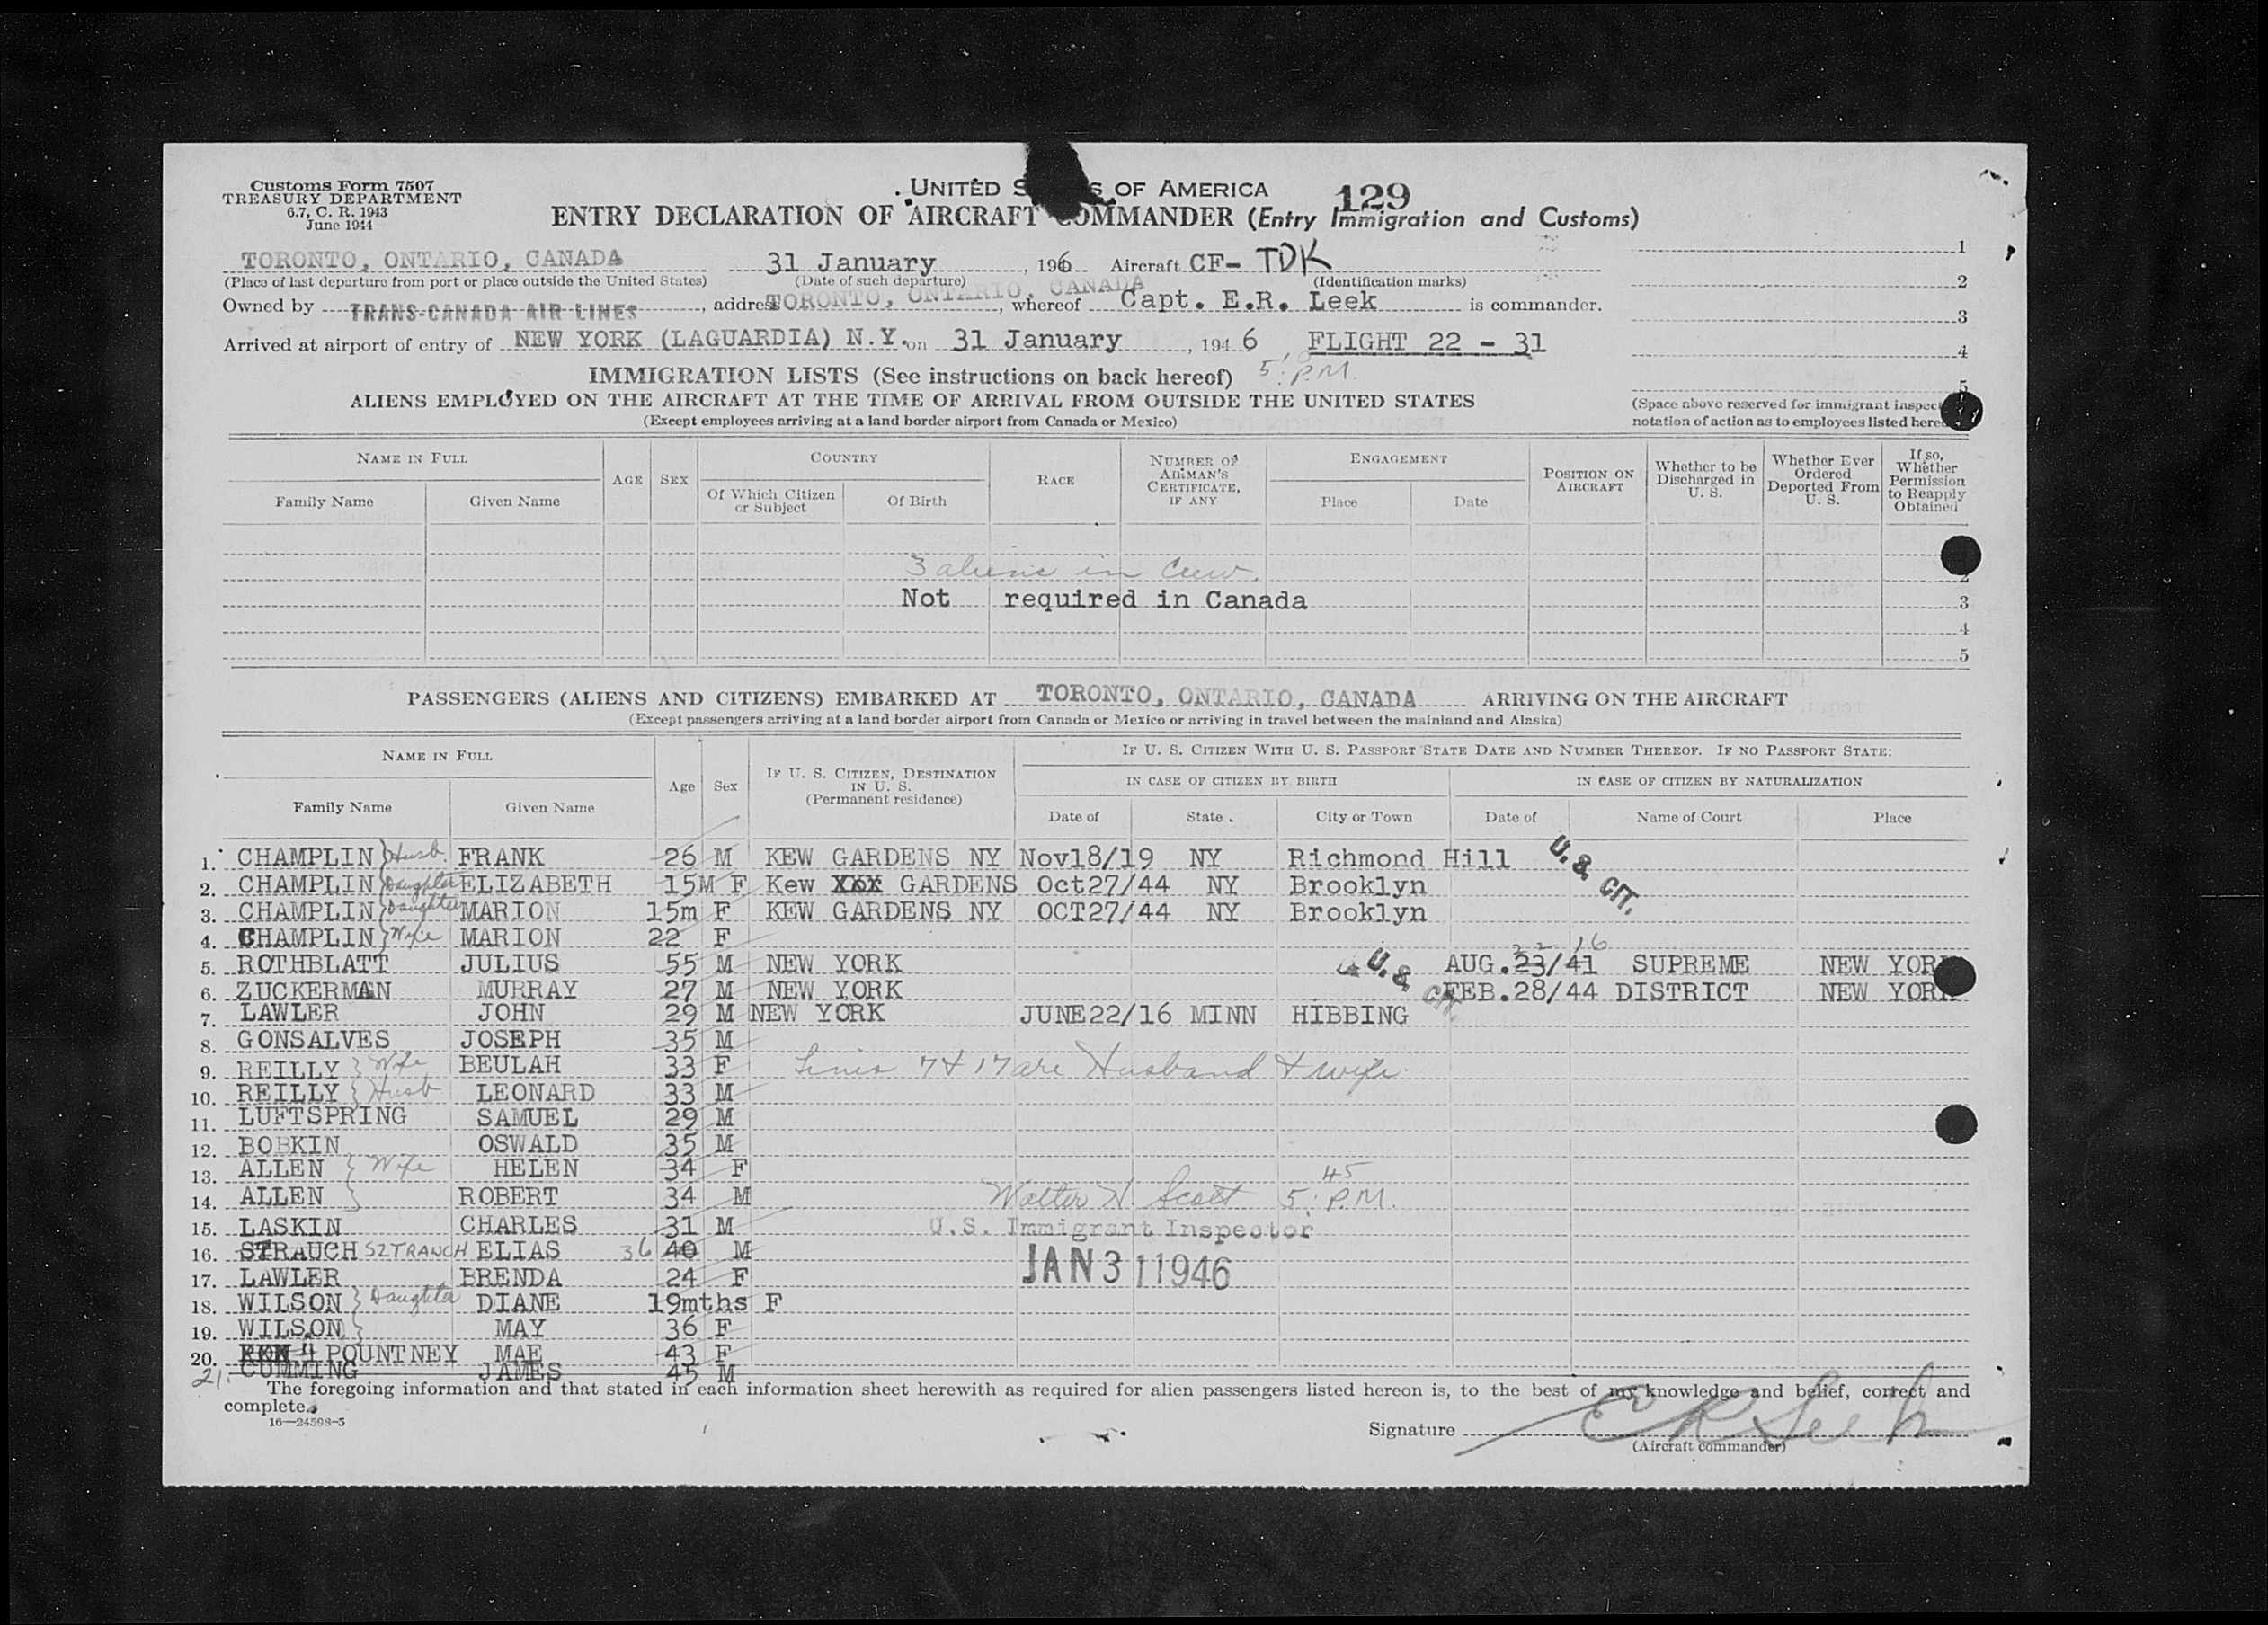 Customs Form 7507
TREASURY DEPARTMENT
6.7, C. R. 1943
June 1944
UNITED S S OF AMERICA
129
ENTRY DECLARATION OF AIRCRAFT COMMANDER (Entry Immigration and Customs)
TORONTO, ONTARIO, CANADA 31 January, 196 Aircraft CF- TDK 1
(Place of last departure from port or place outside the United States) (Date of such departure) (Identification marks) 2
Owned by TRANS-CANADA AIR LINES, addres TORONTO, ONTARIO, CANADA, whereof Capt. E.R. Leek is commander.
3
Arrived at airport of entry of NEW YORK (LAGUARDIA) N.Y. on 31 January, 194 6 FLIGHT 22 - 31 4
IMMIGRATION LISTS (See instructions on back hereof) 5: P.M. 5
ALIENS EMPLOYED ON THE AIRCRAFT AT THE TIME OF ARRIVAL FROM OUTSIDE THE UNITED STATES
(Except employees arriving at a land border airport from Canada or Mexico)
(Space above reserved for immigrant inspect
notation of action as to employees listed here
NAME IN FULL AGE SEX COUNTRY RACE NUMBER OF AIRMAN'S CERTIFICATE, IF ANY ENGAGEMENT POSITION ON AIRCRAFT Whether to be Discharged in U. S. Whether Ever Ordered Deported From U. S. If so, Whether Permission to Reapply Obtained
Family Name Given Name Of Which Citizen or Subject Of Birth Place Date
3 aliens in Crew. 2
Not required in Canada 3
4
5
PASSENGERS (ALIENS AND CITIZENS) EMBARKED AT TORONTO, ONTARIO, CANADA ARRIVING ON THE AIRCRAFT
(Except passengers arriving at a land border airport from Canada or Mexico or arriving in travel between the mainland and Alaska)
NAME IN FULL Age Sex IF U. S. CITIZEN, DESTINATION IN U. S. (Permanent residence) IF U. S. CITIZEN WITH U. S. PASSPORT STATE DATE AND NUMBER THEREOF. IF NO PASSPORT STATE:
IN CASE OF CITIZEN BY BIRTH IN CASE OF CITIZEN BY NATURALIZATION
Family Name Given Name Date of State City or Town Date of Name of Court Place
1. CHAMPLIN Husb. FRANK 26 M KEW GARDENS NY Nov18/19 NY Richmond Hill U.S. CIT.
2. CHAMPLIN Daughter ELIZABETH 15M F Kew XXX GARDENS Oct27/44 NY Brooklyn
3. CHAMPLIN Daughter MARION 15m F KEW GARDENS NY OCT27/44 NY Brooklyn
4. CHAMPLIN Wife MARION 22 F
22 16
5. ROTHBLATT JULIUS 55 M NEW YORK U.S. CIT. AUG.23/41 SUPREME NEW YOR
6. ZUCKERMAN MURRAY 27 M NEW YORK FEB.28/44 DISTRICT NEW YOR
7. LAWLER JOHN 29 M NEW YORK JUNE22/16 MINN HIBBING
8. GONSALVES JOSEPH 35 M
9. REILLY Wife BEULAH 33 F Lines 7 & 17 are Husband & wife.
10. REILLY Husb LEONARD 33 M
11. LUFTSPRING SAMUEL 29 M
12. BOBKIN OSWALD 35 M
13. ALLEN Wife HELEN 34 F
14. ALLEN ROBERT 34 M Walter N. Scott 5:45 P.M.
15. LASKIN CHARLES 31 M U.S. Immigrant Inspector
16. STRAUCH SZTRAUCH ELIAS 36 40 M JAN 31 1946
17. LAWLER BRENDA 24 F
18. WILSON Daughter DIANE 19mths F
19. WILSON MAY 36 F
20. POUNTNEY MAE 43 F
21. CUMMING JAMES 45 M
The foregoing information and that stated in each information sheet herewith as required for alien passengers listed hereon is, to the best of my knowledge and belief, correct and
complete.
16—24598-5
Signature E R Leek
(Aircraft commander)